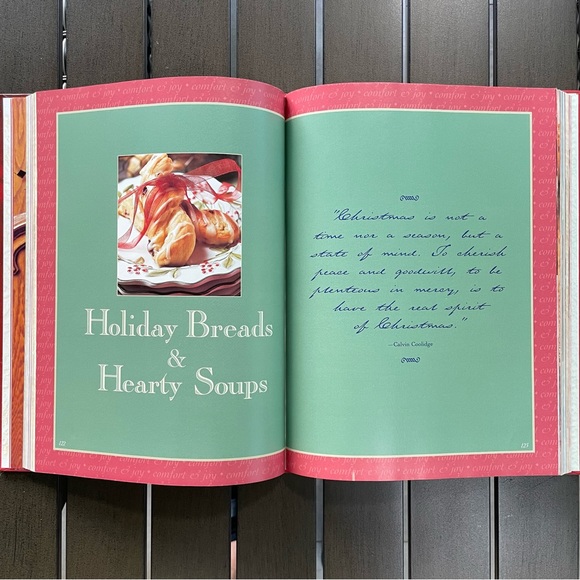 comfort & joy * comfort & joy * comfort & joy
Holiday Breads
&
Hearty Soups
comfort & joy * comfort & joy
comfort & joy * comfort & joy * comfort & joy
"Christmas is not a
time nor a season, but a
state of mind. To cherish
peace and goodwill, to be
plenteous in mercy, is to
have the real spirit
of Christmas."
—Calvin Coolidge
comfort & joy * comfort & joy